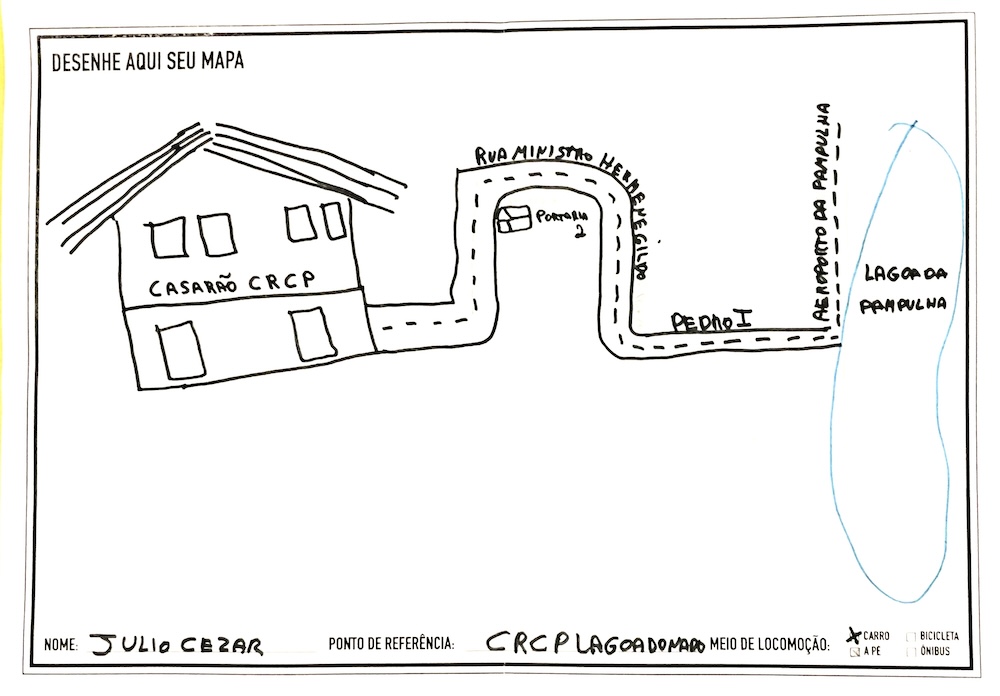 DESENHE AQUI SEU MAPA
RUA MINISTRO HERMENEGILDO
PORTARIA
2
CASARÃO CRCP
PEDRO I
AEROPORTO DA PAMPULHA
LAGOA DA
PAMPULHA
NOME: JULIO CEZAR PONTO DE REFERÊNCIA: CRCP LAGOA DO NADO MEIO DE LOCOMOÇÃO: CARRO BICICLETA
A PÉ ÔNIBUS